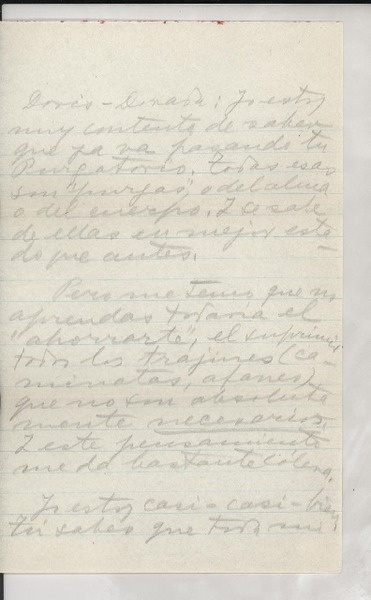 Doris-Dorada: Yo estoy
muy contenta de saber
que ya va pasando tu
Purgatorio. Todas esas
son "purgas", o del alma
o del cuerpo. I se sale
de ellas en mejor esta-
do que antes.
Pero me temo que no
aprendas todavía el
"ahorrarte", el suprimir
todos los trajines (ca-
minatas, afanes)
que no son absoluta
mente necesarios.
I este pensamiento
me da bastante cólera.
Yo estoy casi-casi-bien
tú sabes que toda mi